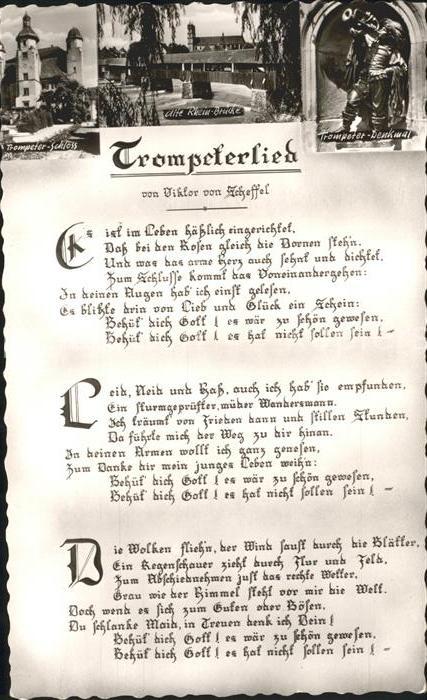 Trompeter-Schloss
Alte Rhein-Brücke
Trompeter-Denkmal
Trompeterlied
von Viktor von Scheffel
Es ist im Leben häßlich eingerichtet,
Daß bei den Rosen gleich die Dornen steh'n.
Und was das arme Herz auch sehnt und dichtet,
Zum Schlusse kommt das Voneinandergehen:
In deinen Augen hab' ich einst gelesen,
Es blitzte drin von Lieb und Glück ein Schein:
Behüt' dich Gott! es wär zu schön gewesen,
Behüt' dich Gott! es hat nicht sollen sein! –
Leid, Neid und Haß, auch ich hab' sie empfunden,
Ein sturmgeprüfter, müder Wandersmann.
Ich träumt' von Frieden dann und stillen Stunden,
Da führte mich der Weg zu dir hinan.
In deinen Armen wollt' ich ganz genesen,
Zum Danke dir mein junges Leben weih'n:
Behüt' dich Gott! es wär zu schön gewesen,
Behüt' dich Gott! es hat nicht sollen sein! –
Die Wolken flieh'n, der Wind saust durch die Blätter,
Ein Regenschauer zieht durch Flur und Feld,
Zum Abschiednehmen just das rechte Wetter,
Grau wie der Himmel steht vor mir die Welt.
Doch wend es sich zum Guten oder Bösen,
Du schlanke Maid, in Treuen denk ich Dein!
Behüt' dich Gott! es wär zu schön gewesen,
Behüt' dich Gott! es hat nicht sollen sein! –